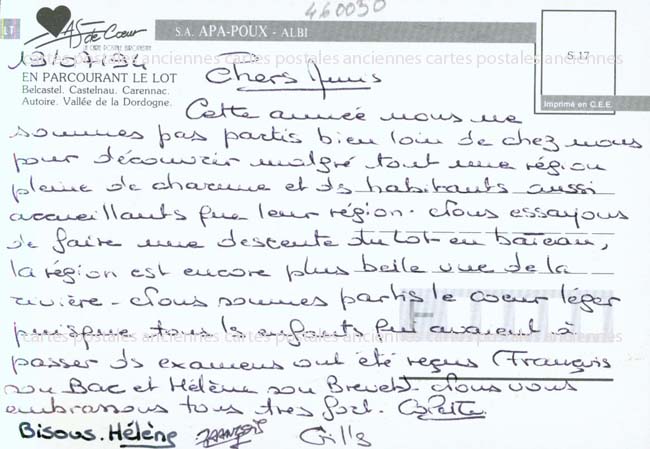 460030
LT
AS de Cœur
LA CARTE POSTALE EUROPEENNE
S.A. APA-POUX - ALBI
13/07/94
cartes postales anciennes cartes postales anciennes cartes postales anciennes
S 17
EN PARCOURANT LE LOT
Belcastel. Castelnau. Carennac.
Autoire. Vallée de la Dordogne.
Imprimé en C.E.E.
Chers Amis
Cette année nous ne
sommes pas partis bien loin de chez nous
pour découvrir malgré tout une région
pleine de charme et ds habitants aussi
accueillants que leur région. Nous essayons
de faire une descente du Lot en bateau,
la région est encore plus belle vue de la
rivière - Nous sommes partis le coeur léger
puisque tous ls enfants qui avaient à
cartes postales anciennes cartes postales anciennes cartes postales anciennes
passer ds examens ont été reçus (François
son Bac et Hélène son Brevet. Nous vous
embrassons tous très fort. Colette
Bisous. Hélène FRANÇOIS Gills